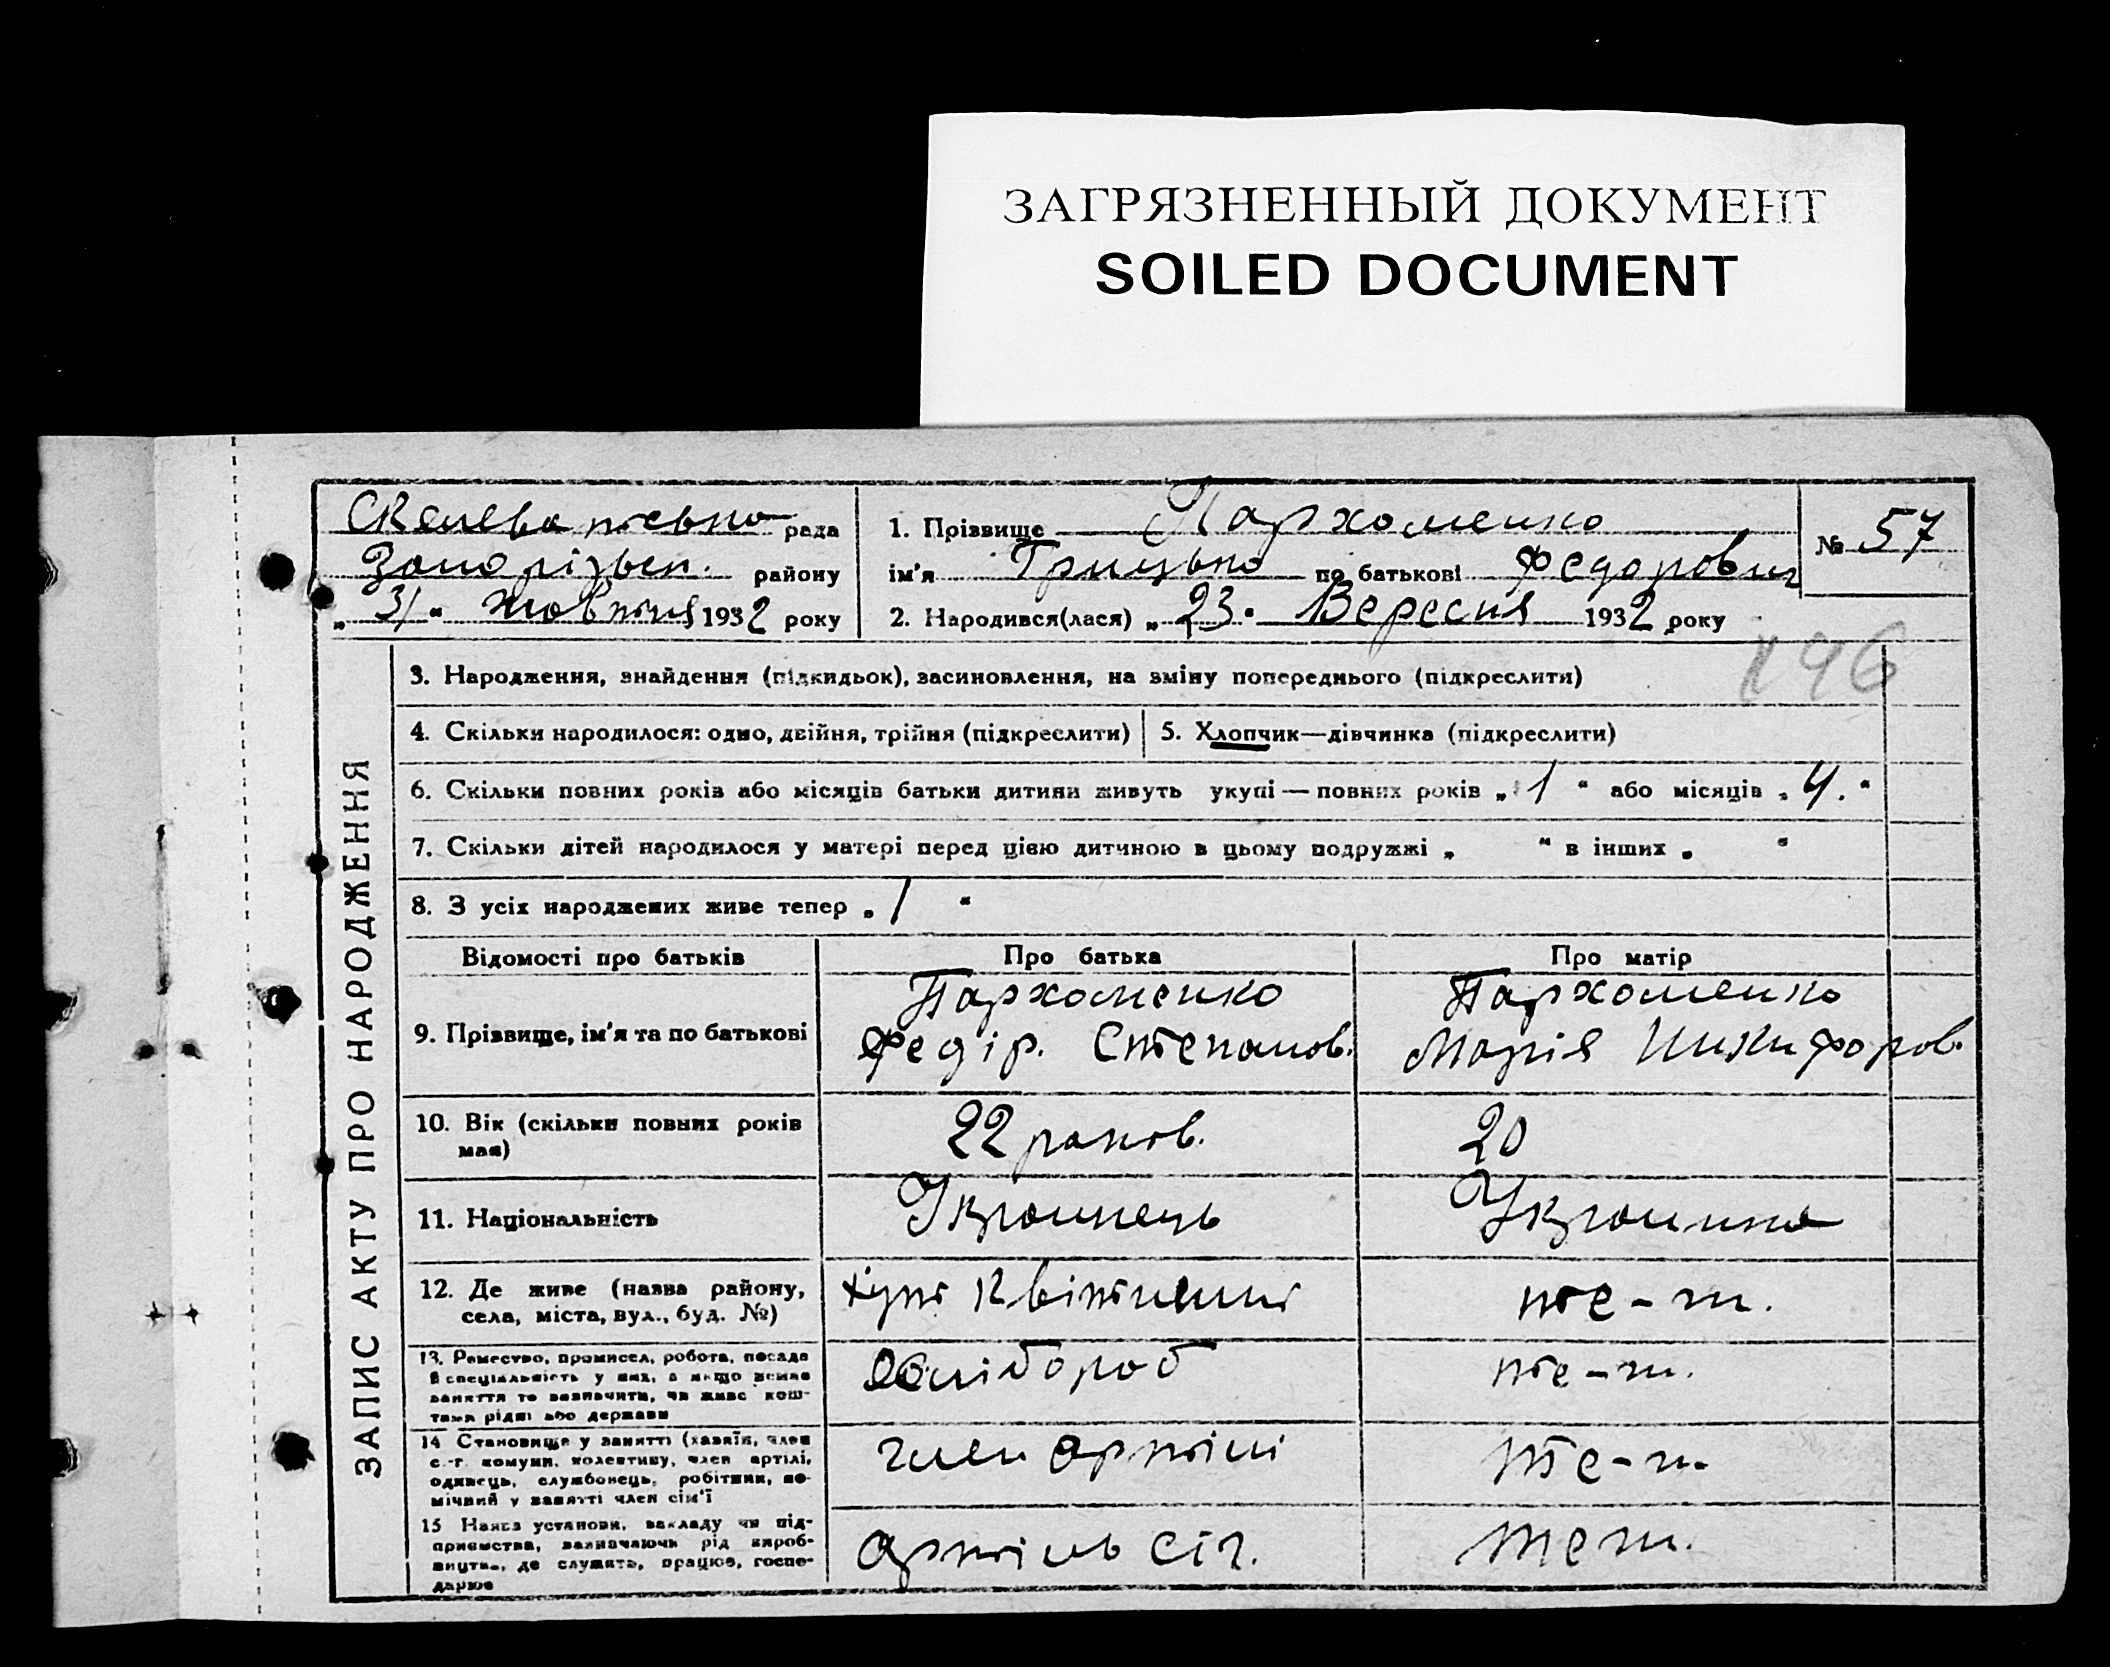 ЗАГРЯЗНЕННЫЙ ДОКУМЕНТ
SOILED DOCUMENT
рада
Запорізьк. району
„31“ жовтня 1932 року
1. Прізвище Пархоменко
ім'я Грицько по батькові Федорович
2. Народився(лася) „23“ Вересня 1932 року
№ 57
196
ЗАПИС АКТУ ПРО НАРОДЖЕННЯ
3. Народження, знайдення (підкидьок), засиновлення, на зміну попереднього (підкреслити)
4. Скільки народилося: одно, двійня, трійня (підкреслити)
5. Хлопчик—дівчинка (підкреслити)
6. Скільки повних років або місяців батьки дитини живуть укупі — повних років „1“ або місяців „4.“
7. Скільки дітей народилося у матері перед цією дитиною в цьому подружжі „ “ в інших „ “
8. З усіх народжених живе тепер „1“
Відомості про батьків
Про батька
Про матір
9. Прізвище, ім'я та по батькові
Пархоменко
Федір. Степанов.
Пархоменко
Марія Никифоров.
10. Вік (скільки повних років
має)
22 роков.
20
11. Національність
Українець
Українка
12. Де живе (назва району,
села, міста, вул., буд. №)
хут Квітиний
те-ж.
13. Ремество, промисел, робота, посада
й спеціальність у них, а якщо немає
заняття то зазначити, чи живе кош-
тами рідні або держави
хлібороб
те-ж.
14 Становище у занятті (хазяїн, член
с.-г. комуни, колективу, член артілі,
одинець, службовець, робітник, по-
мічний у занятті член сім'ї
член артілі
те-ж
15 Назва установи, закладу чи під-
приємства, зазначаючи рід вироб-
ництва, де служить, працює, госпо-
дарює
артіль Січ.
теж.